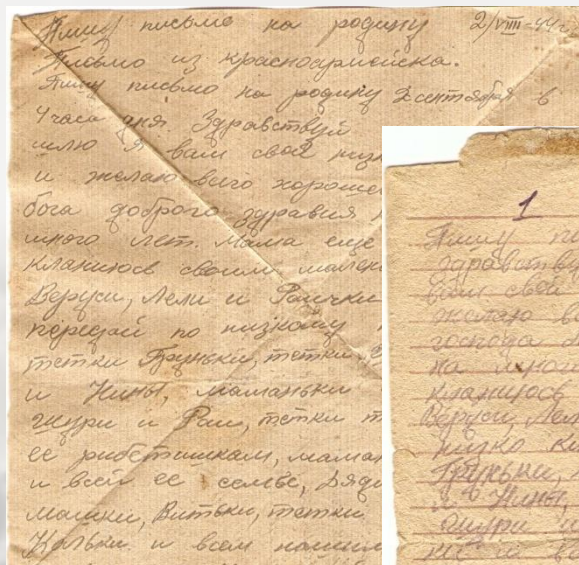 Пишу письмо на родину 2/VIII-44 г.
Письмо из красноармейска.
Пишу письмо на родину 2 сентября в
4 часа дня. Здравствуй
шлю я вам свой низк
и желаю всего хороше
бога доброго здравия
много лет. Мама еще
кланиюсь своим мален
Веруси, Лели и Раички
передай по низкому
тетки Груньки, тетки
и Нины, маманьки
Шури и Раи, тетки
ее рибетишкам, мама
и всей ее семье, Дяди
машки, Витьки, тетки
Кольки и всем нашим
1
Пишу пи
здравствуй
вам свой
желаю в
господа
на много
кланиюсь
Веруси, Лели
низко кл
Груньки,
и Нины,
Шури и